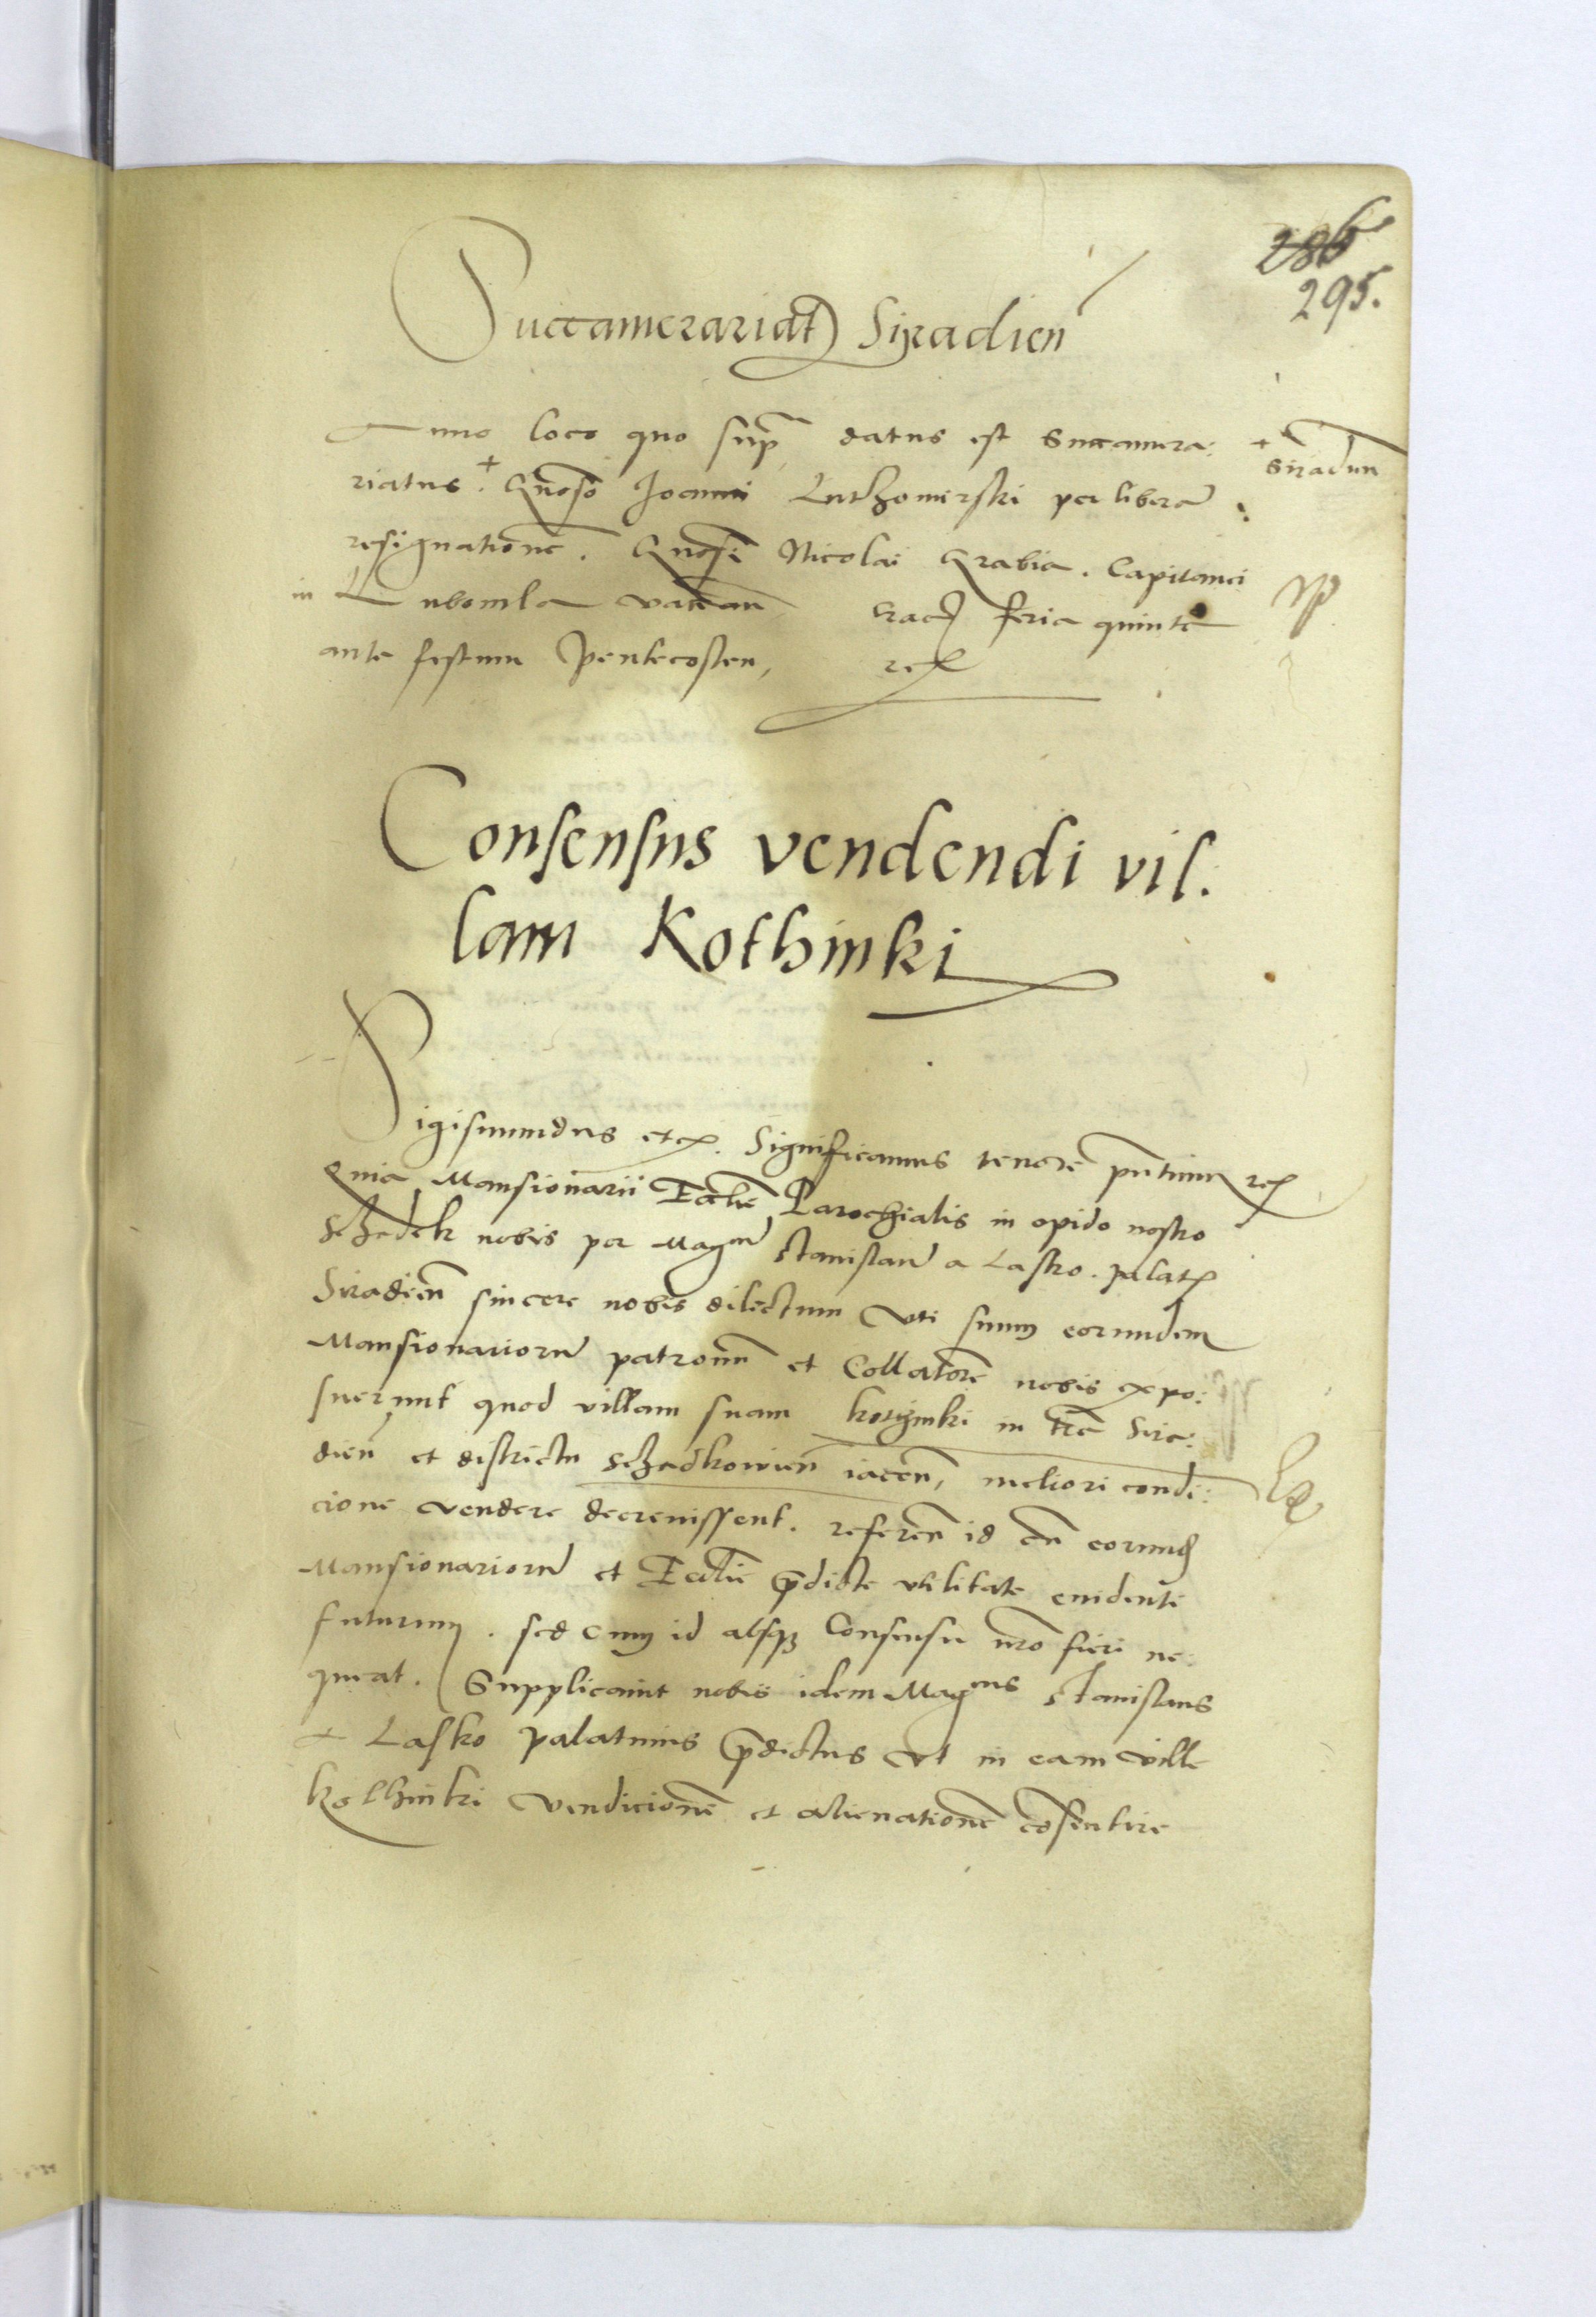 286
295.
Succamerariat9 Siradien
Anno loco quo sup̄ datus est Succamera:
riatus + Gnoso Joanni Luthomirski per liberā
+ Siradien
resignationē. Gnosi Nicolai Grabia. Capitanei
in Lubomla vacan̄ Crac feria quinta
ante festum Pentecosten, rex
Consensus vendendi vil.
lam Kothinki
Sigismundus etc. Significamus tenore pn̄tium rex
Quia Mansionarii Eccliē Parochialis in opido nostro
Schadek nobis per Magcū Stanislaū a Lasko. palat
Siradien̄ sincere nobis dilectum Uti suum eorundem
Mansionariorū patronū et Collatorē nobis expo:
suerunt quod villam suam kothinki in tr̄a Sira:
dien̄ et districtu Schadkowien̄ iacen̄, meliori condi:
cione vendere decreuissent. referen̄ id cū eorund
Mansionariorū et Eccliē p̄dicte utilitate euidenti
futurum. sed cum id absq3 Consensu nr̄o fieri ne:
queat. Supplicauit nobis idem Magcus Stanislaus
a Lasko palatinus p̄dictus Ut in eam ville
kothinki vendicionē et alienationē cōsentire